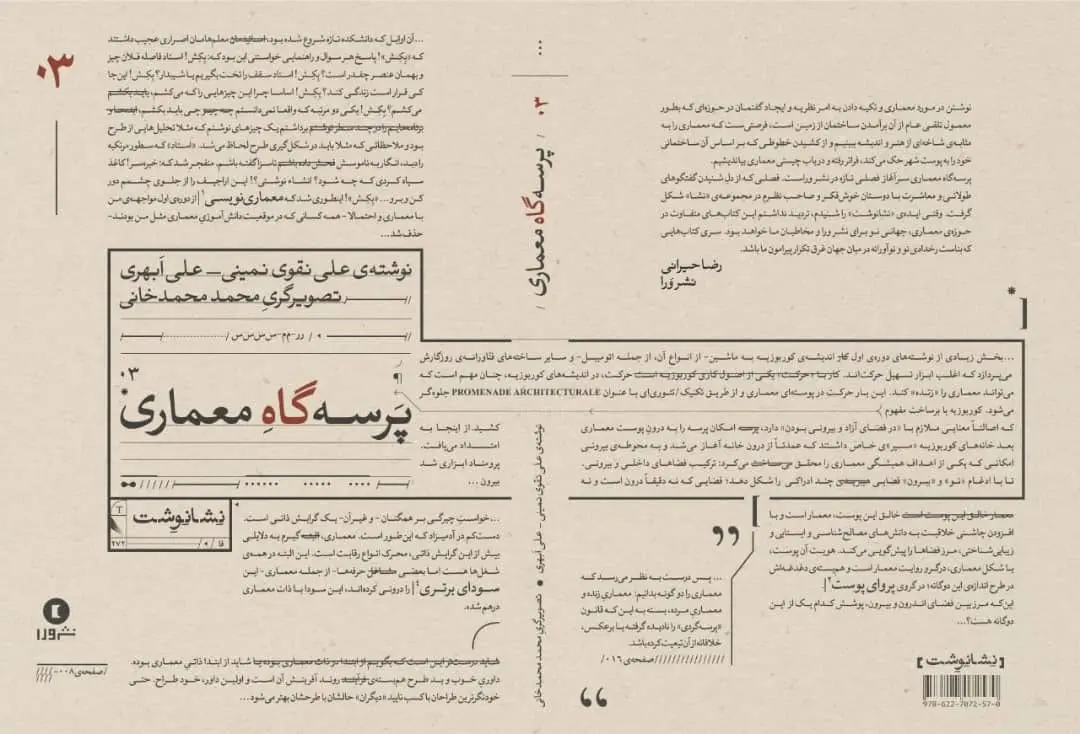 ...آن اوایل که دانشکده تازه شروع شده بود، اساتیدمان معلم‌هامان اصراری عجیب داشتند
که «بِکِش»! پاسخ هر سوال و راهنمایی خواستنی این بود که: بِکِش! استاد فاصله فلان چیز
و بهمان عنصر چقدر است؟ بِکِش! استاد سقف را تخت بگیریم یا شیبدار؟ بِکِش! این‌جا
کی قرار است زندگی کند؟ بِکِش! اساسا چرا این چیزهایی را که می‌کشم، باید بکشم
می‌کشم؟ بِکِش! یکی دو مرتبه که واقعا نمی‌دانستم چه چیز چی باید بکشم، ابتدا و
برنامه‌ایم را در چند سطر نوشتم برداشتم یک چیزهای نوشتم که مثلا تحلیل‌هایی از طرح
بود و ملاحظاتی که مثلا باید در شکل‌گیری طرح لحاظ می‌شد. «استاد» که سطور مرتکبه
را دید، انگار به ناموسش فحش داده باشم ناسزا گفته باشم، منفجر شد که: خیره‌سر! کاغذ
سیاه کردی که چه شود؟ انشاء نوشتی؟! این اراجیف را از جلوی چشمم دور
کن و برو... «بِکِش»! اینطوری شد که معماری‌نویسی۱ از دوره‌ی اول مواجهه‌ی من
با معماری و احتمالا - همه کسانی که در موقعیت دانش‌آموزیِ معماری مثل من بودند-
حذف شد...
۰۳
نوشته‌ی علی نقوی نمینی – علی اَبهری
تصویرگریِ محمد محمدخانی
۰۳
پَرسه‌گاهِ معماری
نشانوِشت
۲۷۲
نشر وَرا
صفحه‌ی ۰۰۸
...خواستِ چیرگی بر همگنان - و غیرآن- یک گرایش ذاتی است.
دست‌کم در آدمیزاد که این‌طور است. معماری، البته گیرم به دلایلی
بیش از این گرایش ذاتی، محرک انواع رقابت است. این البته در همه‌ی
شغل‌ها هست اما بعضی مشاغل حرفه‌ها- از جمله معماری- این
سودای برتری۴ را درونی کرده‌اند، این سودا با ذات معماری
درهم شده.
شاید درست‌تر این است که بگویم از ابتدا در ذات معماری بوده یا شاید از ابتدا ذاتیِ معماری بوده.
داوریِ خوب و بد طرح هم‌بسته‌ی فرآیند روند آفرینش آن است و اولین داور، خود طراح. حتی
خودنگرترین طراحان با کسب تایید «دیگران» حالشان با طرحشان بهتر می‌شود...
۰۳
پرسه‌گاه معماری
نوشته‌ی علی نقوی نمینی - علی اَبهری ● تصویرگریِ محمد محمدخانی
نوشتن در مورد معماری و تکیه دادن به امر نظریه و ایجاد گفتمان در حوزه‌ای که بطور
معمول تلقی عام از آن برآمدن ساختمان از زمین است، فرصتی ست که معماری را به
مثابه‌ی شاخه‌ای از هنر و اندیشه ببینیم و از کشیدن خطوطی که بر اساس آن ساختمانی
خود را به پوست شهر حک می‌کند، فراتر رفته و در باب چیستی معماری بیاندیشیم.
پرسه‌گاه معماری سرآغاز فصلی تازه در نشر وراست. فصلی که از دلِ شنیدن گفتگوهای
طولانی و معاشرت با دوستان خوش‌فکر و صاحب نظرم در مجموعه‌ی «نشا» شکل
گرفت. وقتی ایده‌ی «نشانوشت» را شنیدم، تردید نداشتم این کتاب‌های متفاوت در
حوزه‌ی معماری، جهانی نو برای نشر ورا و مخاطبان ما خواهد بود. سری کتاب‌هایی
که بناست رخدادی نو و نوآورانه در میان جهان غرق تکرار پیرامون ما باشد.
رضا حیرانی
نشر وَرا
...بخش زیادی از نوشته‌های دوره‌ی اول کار اندیشه‌ی کوربوزیه به ماشین- از انواع آن، از جمله اتومبیل- و سایر ساخته‌های فناورانه‌ی روزگارش
می‌پردازد که اغلب ابزار تسهیل حرکت‌اند. کار با «حرکت» یکی از اصول کاری کوربوزیه است حرکت، در اندیشه‌های کوربوزیه، چنان مهم است که
می‌تواند معماری را «زنده» کند. این بار حرکتِ در پوسته‌ای معماری و از طریق تکنیک/تئوری‌ای با عنوان PROMENADE ARCHITECTURALE جلوه‌گر
می‌شود. کوربوزیه با برساخت مفهوم
که اصالتاً معنایی ملازم با «در فضای آزاد و بیرونی بودن» دارد، پرسه امکان پرسه را به درونِ پوست معماری
کشید. از اینجا به
بعد خانه‌های کوربوزیه «مسیر»ی خاص داشتند که عمدتاً از درون خانه آغاز می‌شد و به محوطه‌ی بیرونی
امتداد می‌یافت.
امکانی که یکی از اهداف همیشگی معماری را محقق می‌ساخت می‌کرد: ترکیب فضاهای داخلی و بیرونی.
پرومناد ابزاری شد
تا با ادغام «تو» و «بیرون» فضایی چند ادراکی را شکل دهد؛ فضایی که نه دقیقاً درون است و نه
بیرون ...
معمار خالق این پوست است خالق این پوست، معمار است و با
افزودن چاشنی خلاقیت به دانش‌های مصالح‌شناسی و ایستایی و
زیبایی‌شناختی، مرز فضاها را پیش‌گویی می‌کند. هویت آن پوست،
یا شکل معماری، درگرو روایت معمار است و هم‌بسته‌ی دغدغه‌اش
در طرح اندازه‌ی این دوگانه؛ در گروی پروای پوست۲
این‌که مرز بین فضای اندرون و بیرون، پوشش کدام یک از این
دوگانه هست؟...
... پس درست به نظر می‌رسد که
معماری را دو گونه بدانیم: معماری زنده و
معماری مرده، بسته به این که قانون
«پرسه‌گردی» را نادیده گرفته یا برعکس،
خلاقانه از آن تبعیت کرده باشد.
صفحه‌ی ۰۱۶
[نشانوِشت]
978-622-7072-57-0